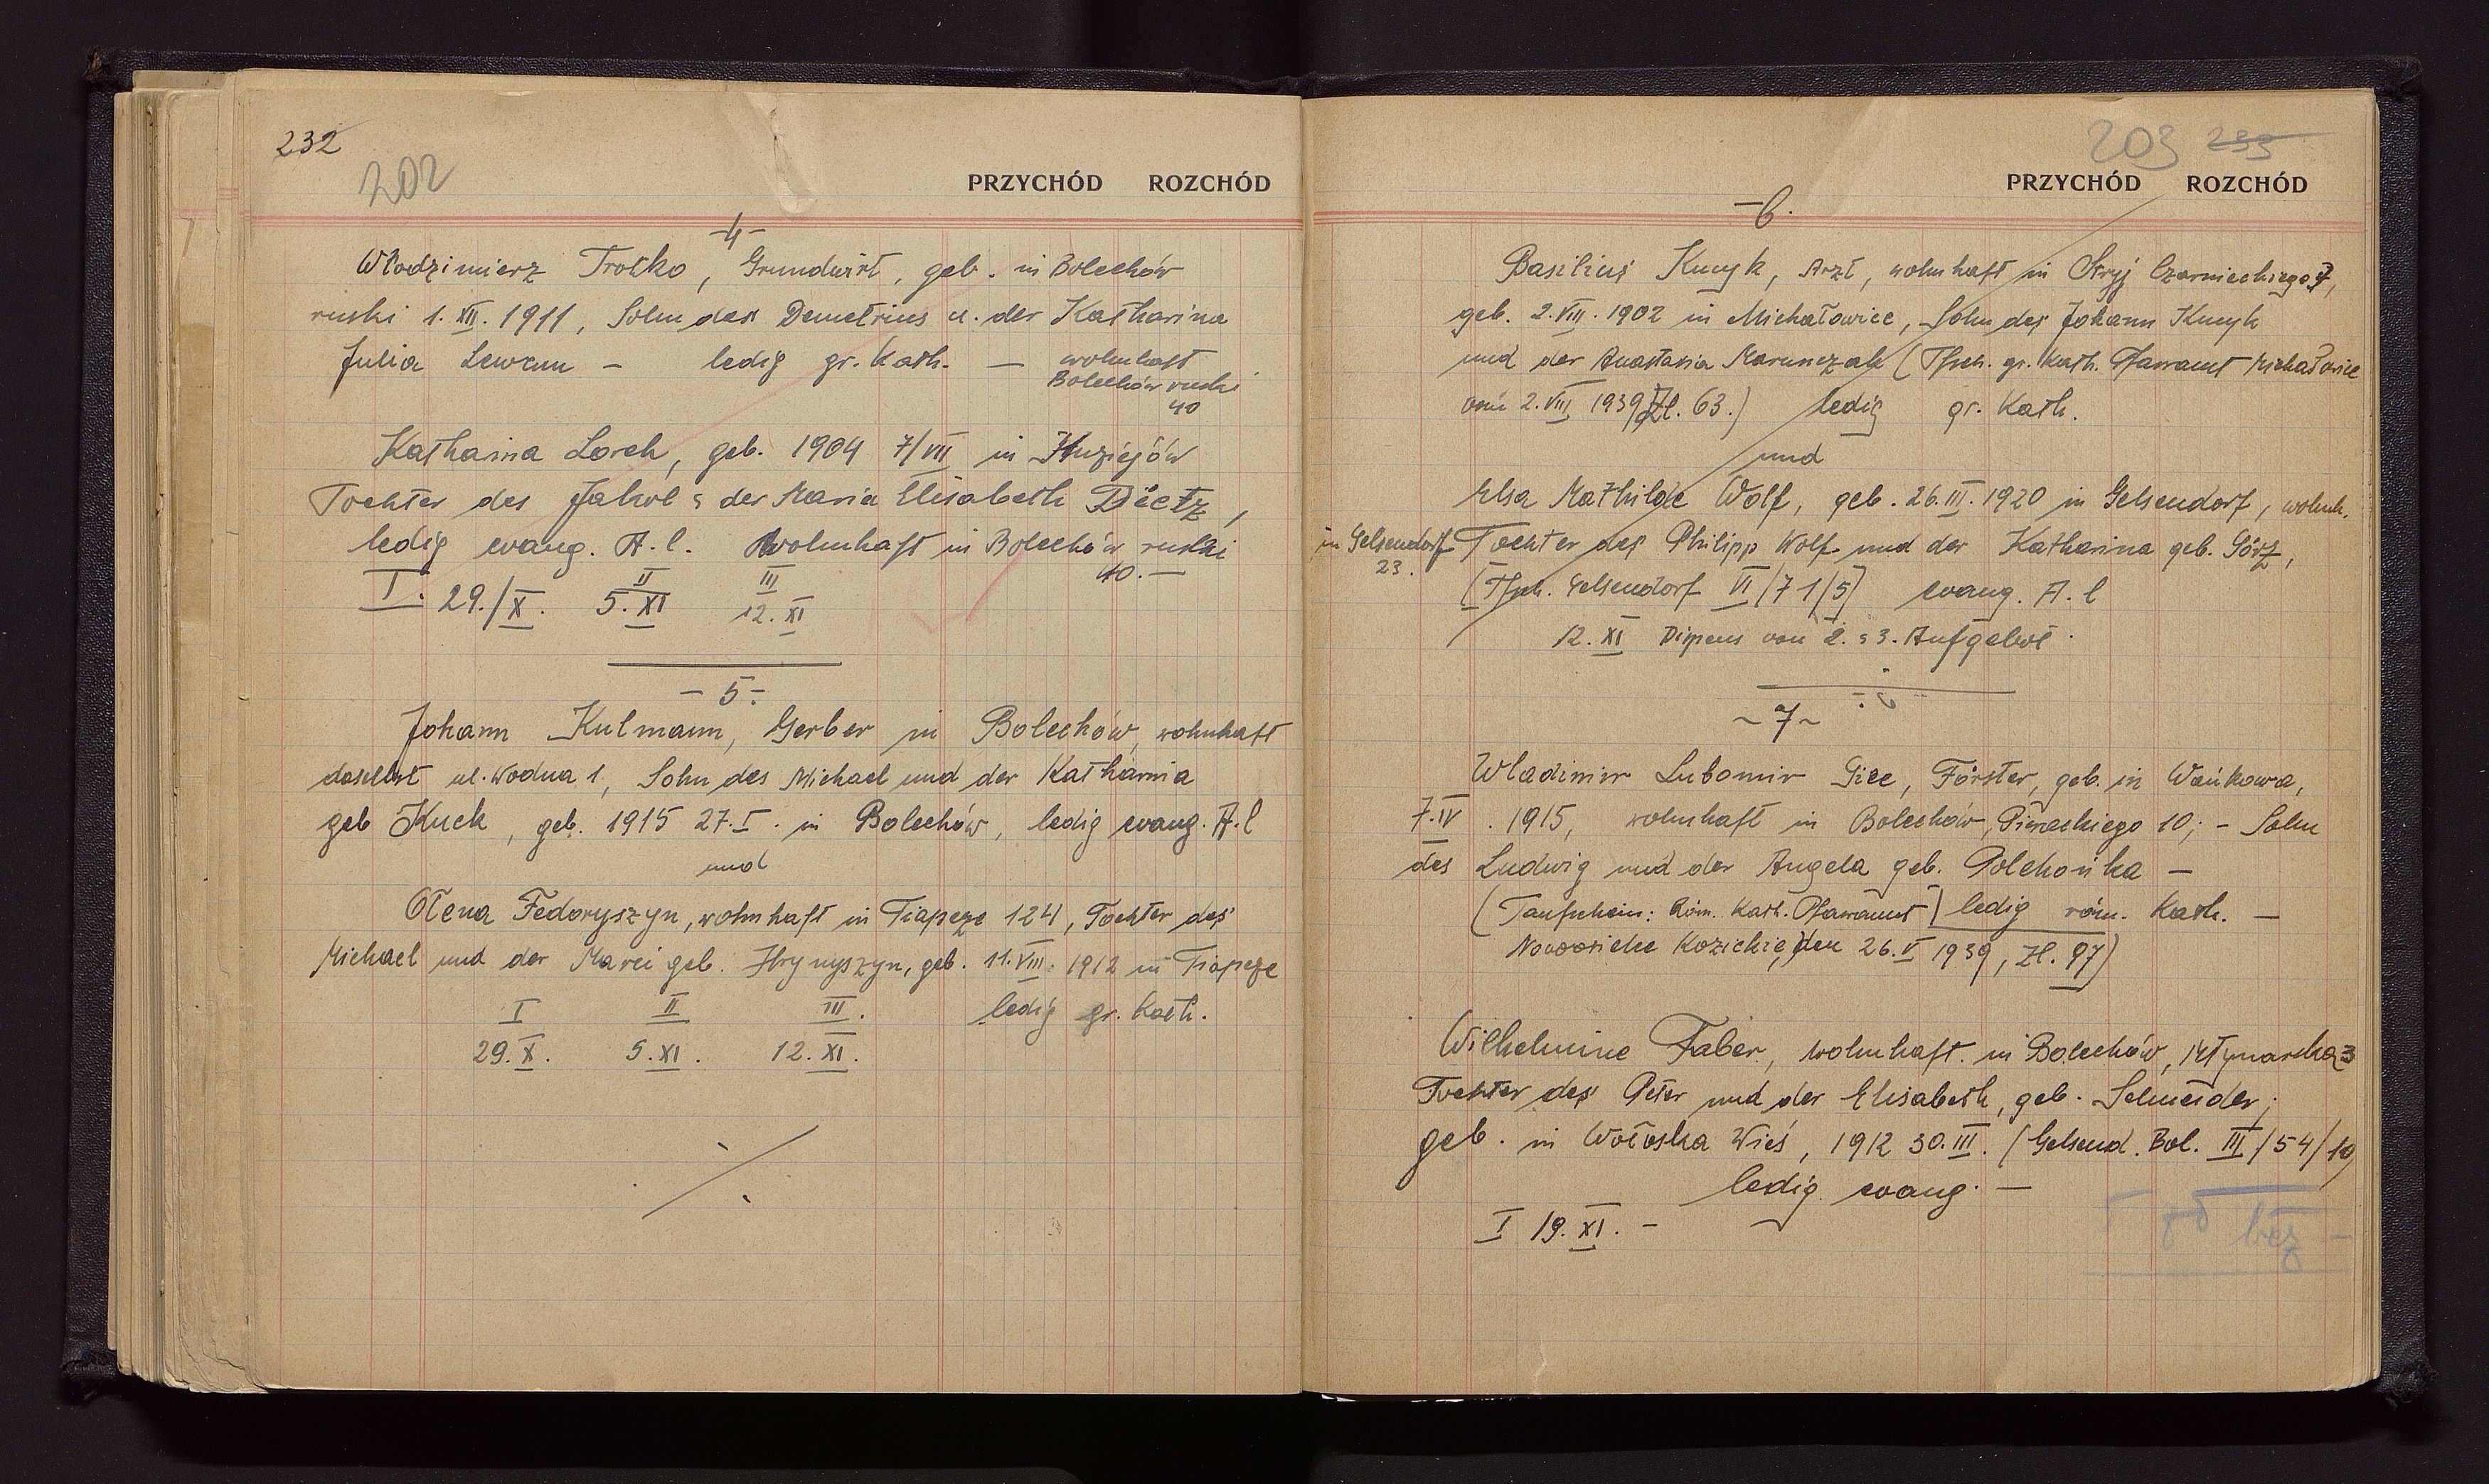 232
202
PRZYCHÓD ROZCHÓD
-4-
Włodzimierz Trotko, Grundwirt, geb. in Bolechów
ruski 1. XII. 1911, Sohn des Demetrius u. der Katharina
Julia Lewrun - ledig gr. kath. — wohnhaft
Bolechów ruski
40
Katharina Lorch, geb. 1904 7/VII in Huziejów
Tochter des Jakob & der Maria Elisabeth Dietz,
ledig evang. A. l. wohnhaft in Bolechów ruski
40.—
I. 29./X. II 5. XI III 12. XI
- 5 -
Johann Kulmann, Gerber in Bolechów, wohnhaft
daselbst ul. Wodna 1, Sohn des Michael und der Katharina
geb Kuck, geb. 1915 27. I. in Bolechów, ledig evang. A. l
und
Olena Fedoryszyn, wohnhaft in Tiapcze 124, Tochter des
Michael und der Marei geb. Hrynyszyn, geb. 11. VIII. 1912 in Tiapcze
I II III. ledig gr. kath.
29. X. 5. XI. 12. XI.
203 233
PRZYCHÓD ROZCHÓD
-6.
Basilius Kmyk, Arzt, wohnhaft in Stryj Czarnieckiego 7,
geb. 2. VIII. 1902 in Michałowice, Sohn des Johann Kmyk
und der Anastasia Marunczak (Tfsch. gr. kath. Pfarramt Michałowice
vom 2. VIII 1939 Zl. 63.) ledig gr. kath.
und
Elsa Mathilde Wolf, geb. 26. III. 1920 in Gelsendorf, wohnh.
in Gelsendorf Tochter des Philipp Wolf und der Katharina geb. Görz,
23.
[Tfsch. Gelsendorf VI/71/5] evang. A. l
12. XI Dispens von 2. & 3. Aufgebot.
~ 7 ~
Wladimir Lubomir Giee, Förster, geb. in Wańkowa,
7. IV. 1915, wohnhaft in Bolechów, Pierackiego 10; - Sohn
des Ludwig und der Angela geb. Polchońka —
(Taufschein: Röm. kath. Pfarramt ledig röm. kath. —
Nowosielce Kozickie, den 26. V 1939, Zl. 97)
Wilhelmine Faber, wohnhaft in Bolechów, Młynarska 3
Tochter des Peter und der Elisabeth, geb. Schneider;
geb. in Wołoska Wieś, 1912 30. III. (Gelsend. Bol. III/54/10)
ledig evang. —
I 19. XI. -
bez